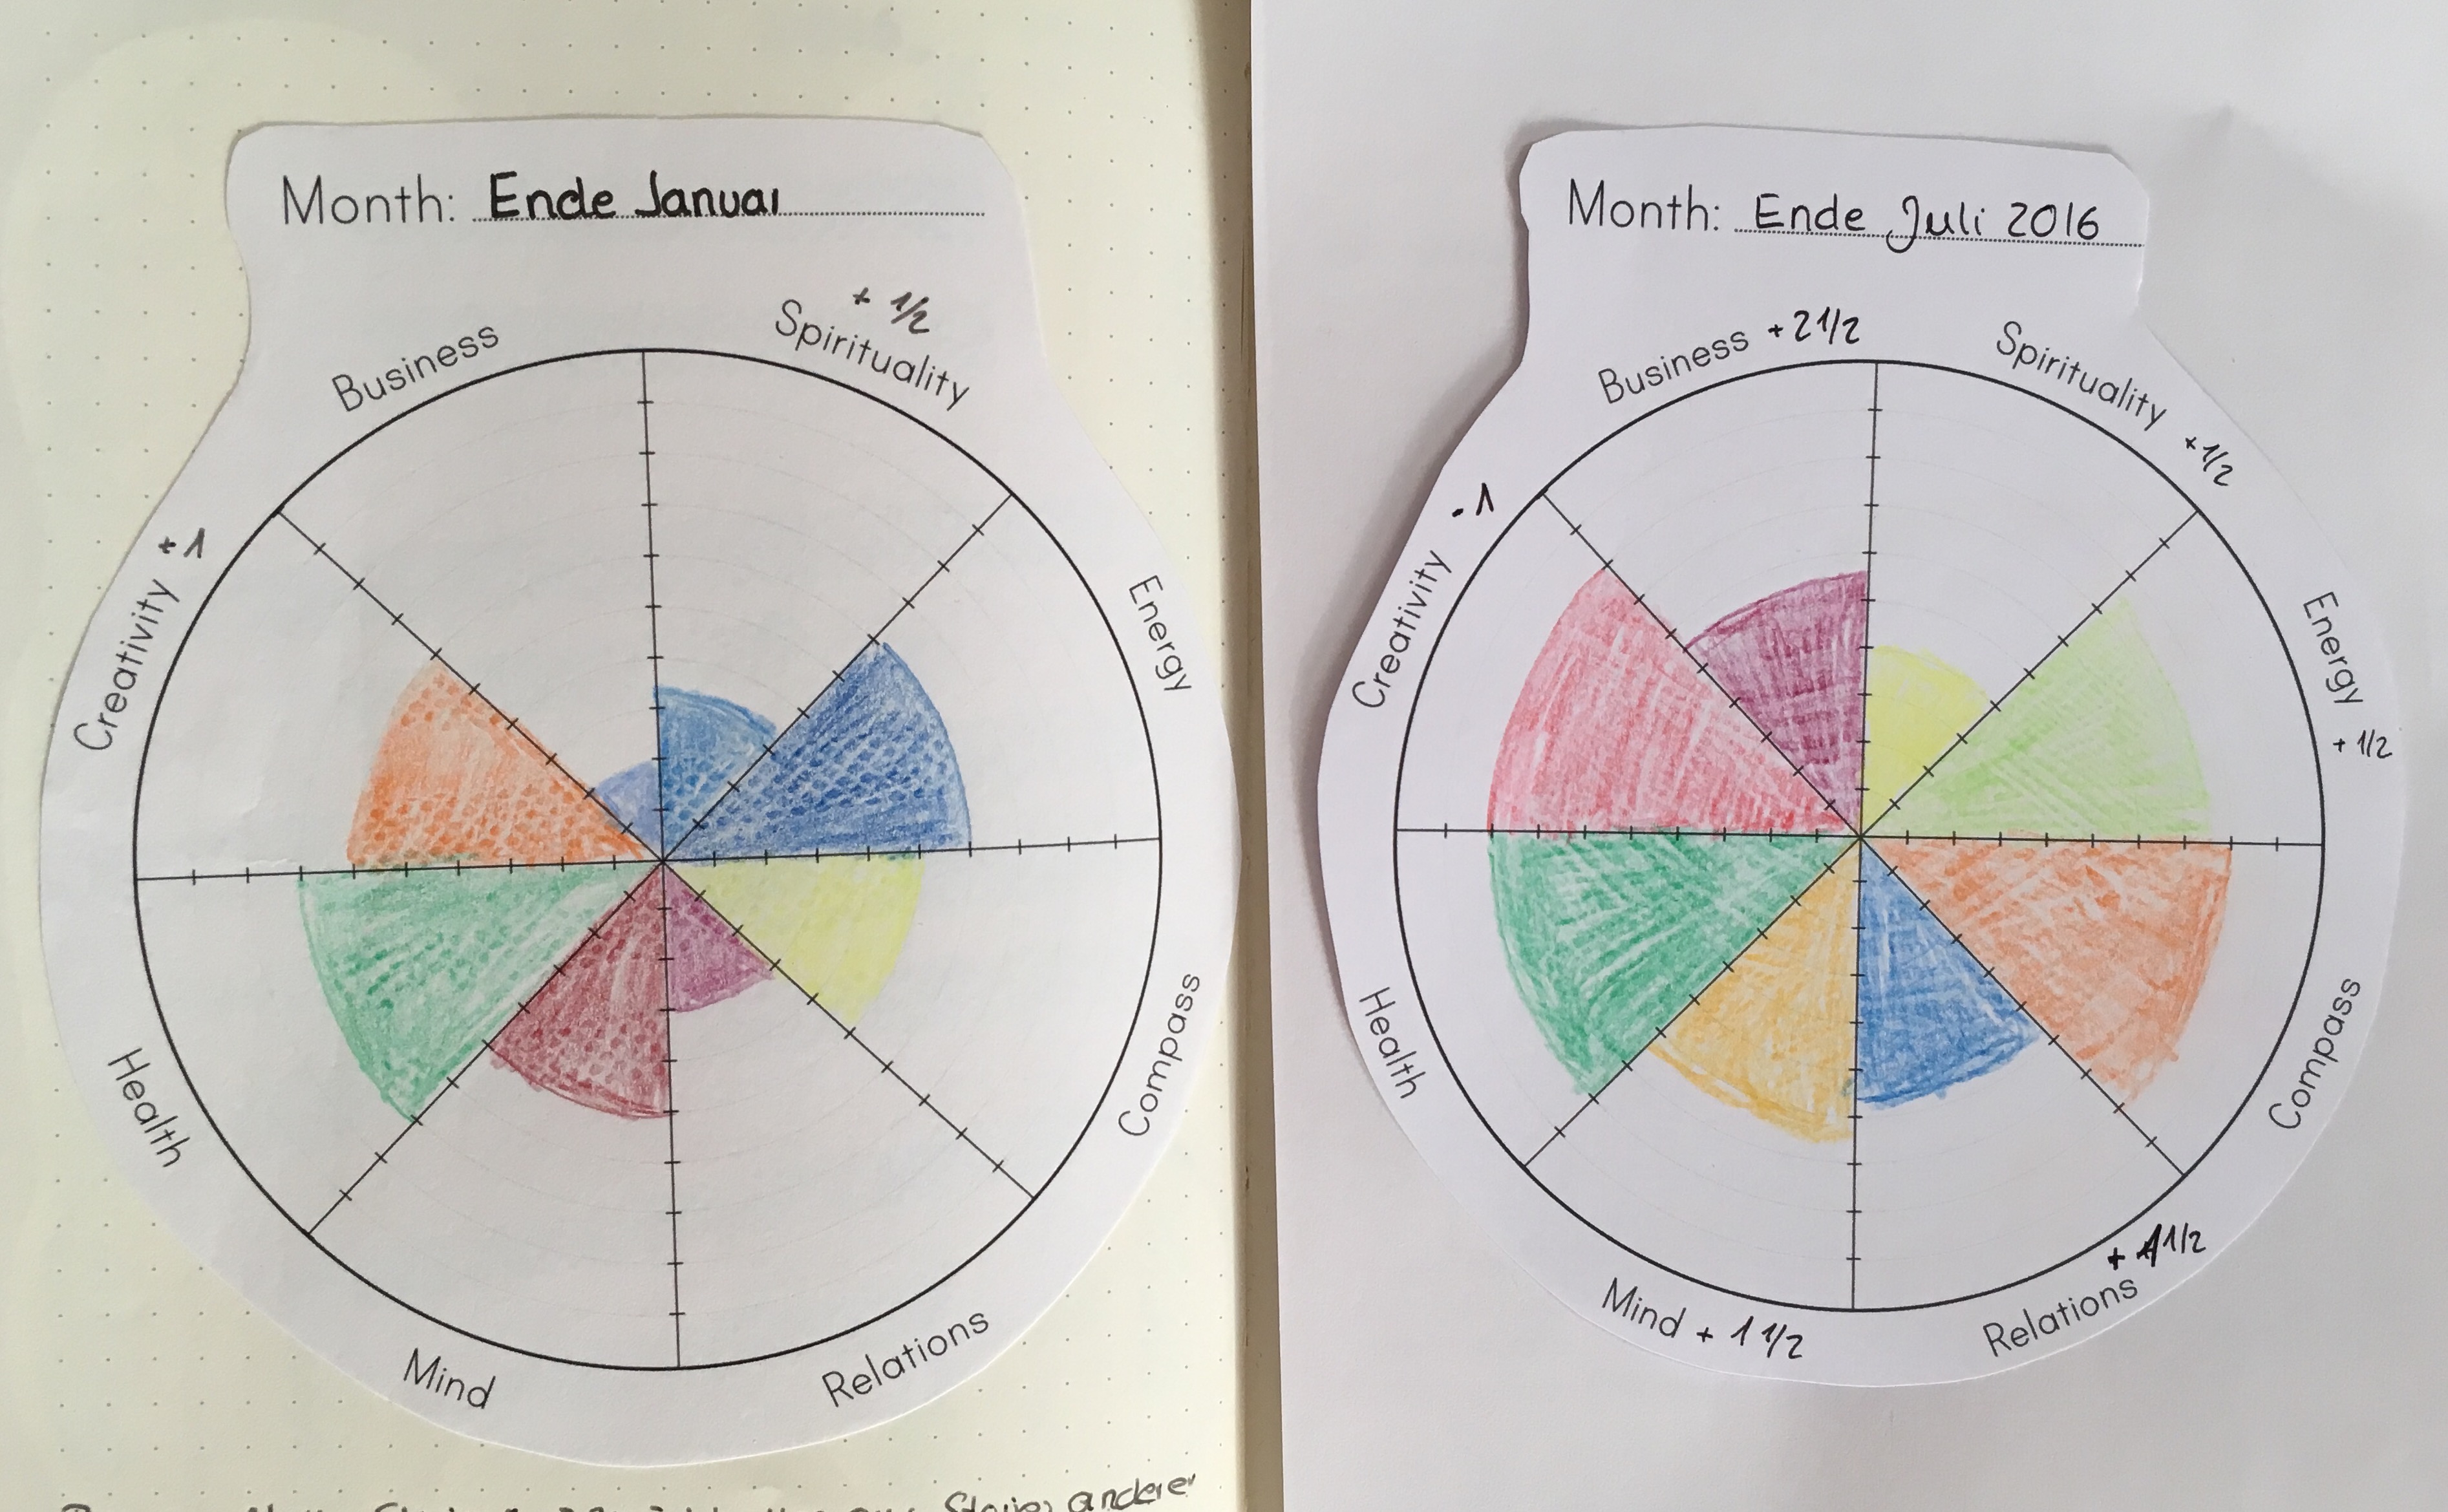 Month: Ende Januar
+ 1/2
Spirituality
Business
Creativity + 1
Energy
Health
Compass
Mind
Relations
Stories anderer
Month: Ende Juli 2016
Business + 2 1/2
Spirituality + 1/2
Creativity - 1
Energy + 1/2
Health
Compass
Mind + 1 1/2
+ 1 1/2
Relations